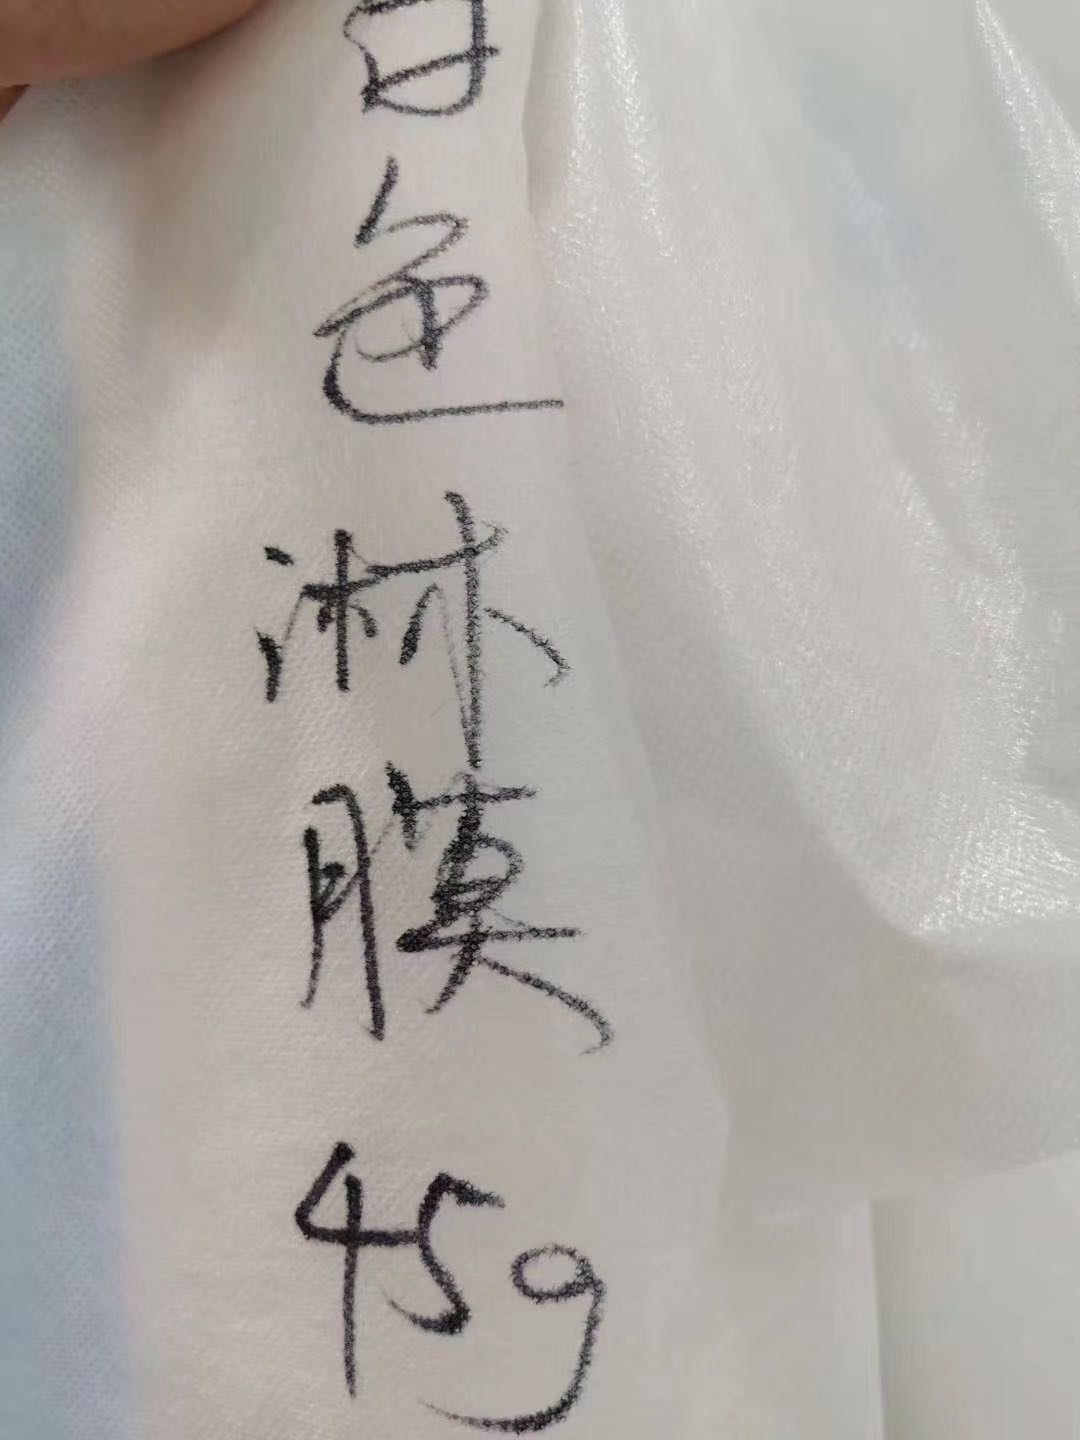 白色
淋膜
45g